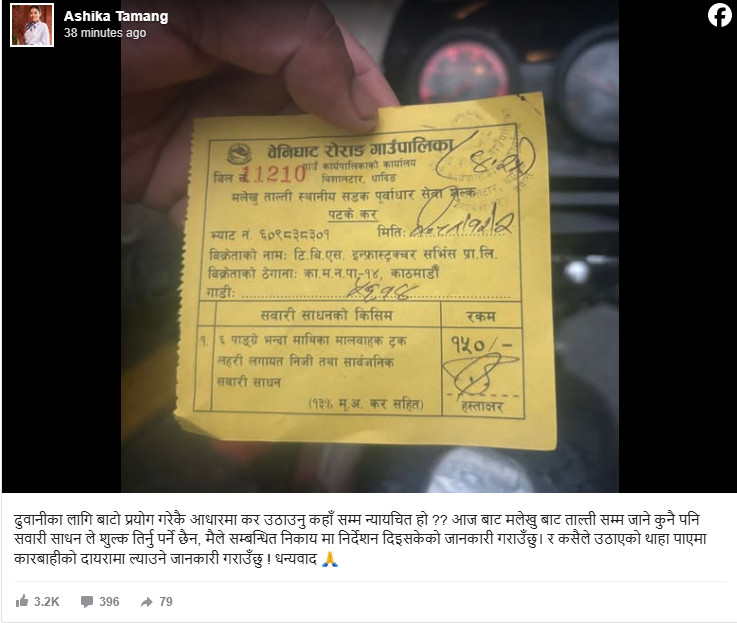 Ashika Tamang
38 minutes ago
वेनिघाट रोराङ गाउँपालिका
गाउँ कार्यपालिकाको कार्यालय
बिल नं. 11210 बिशालटार, धादिङ
मलेखु ताल्ती स्थानीय सडक पूर्वाधार सेवा शुल्क
पटके कर
भ्याट नं. ६०९८३८३०१ मितिः
बिक्रेताको नामः टि.बि.एस. इन्फ्रास्ट्रक्चर सर्भिस प्रा.लि.
बिक्रेताको ठेगानाः का.म.न.पा.-१४, काठमाडौँ
गाडीः
सवारी साधनको किसिम रकम
१. ६ पाङ्ग्रे भन्दा माथिका मालवाहक ट्रक १५०/-
लहरी लगायत निजी तथा सार्वजनिक
सवारी साधन
(१३% मू.अ. कर सहित) हस्ताक्षर
ढुवानीका लागि बाटो प्रयोग गरेकै आधारमा कर उठाउनु कहाँ सम्म न्यायचित हो ?? आज बाट मलेखु बाट ताल्ती सम्म जाने कुनै पनि
सवारी साधन ले शुल्क तिर्नु पर्ने छैन, मैले सम्बन्धित निकाय मा निर्देशन दिइसकेको जानकारी गराउँछु। र कसैले उठाएको थाहा पाएमा
कारबाहीको दायरामा ल्याउने जानकारी गराउँछु ! धन्यवाद 🙏
3.2K 396 79